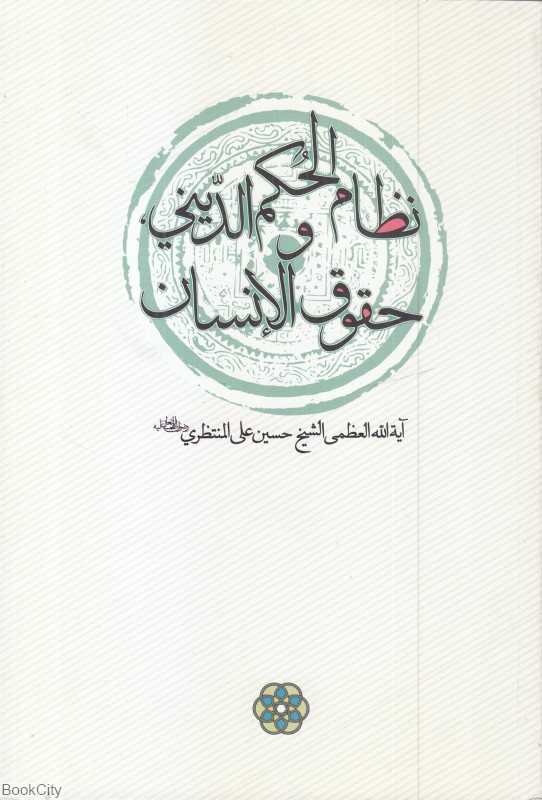 نظام الحُكم الدّيني،
و
حقوق الإنسان
آية الله العظمى الشيخ حسين علي المنتظري
BookCity